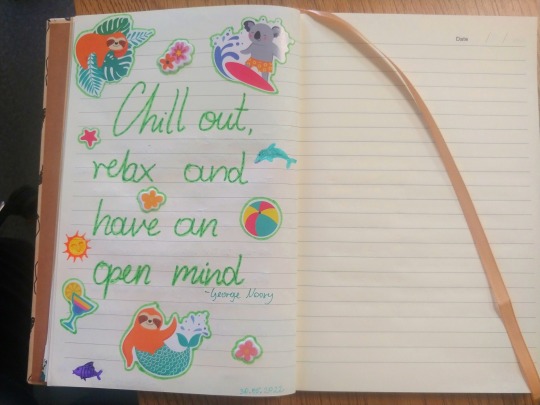 Date
Chill out,
relax and
have an
open mind
-George Noory